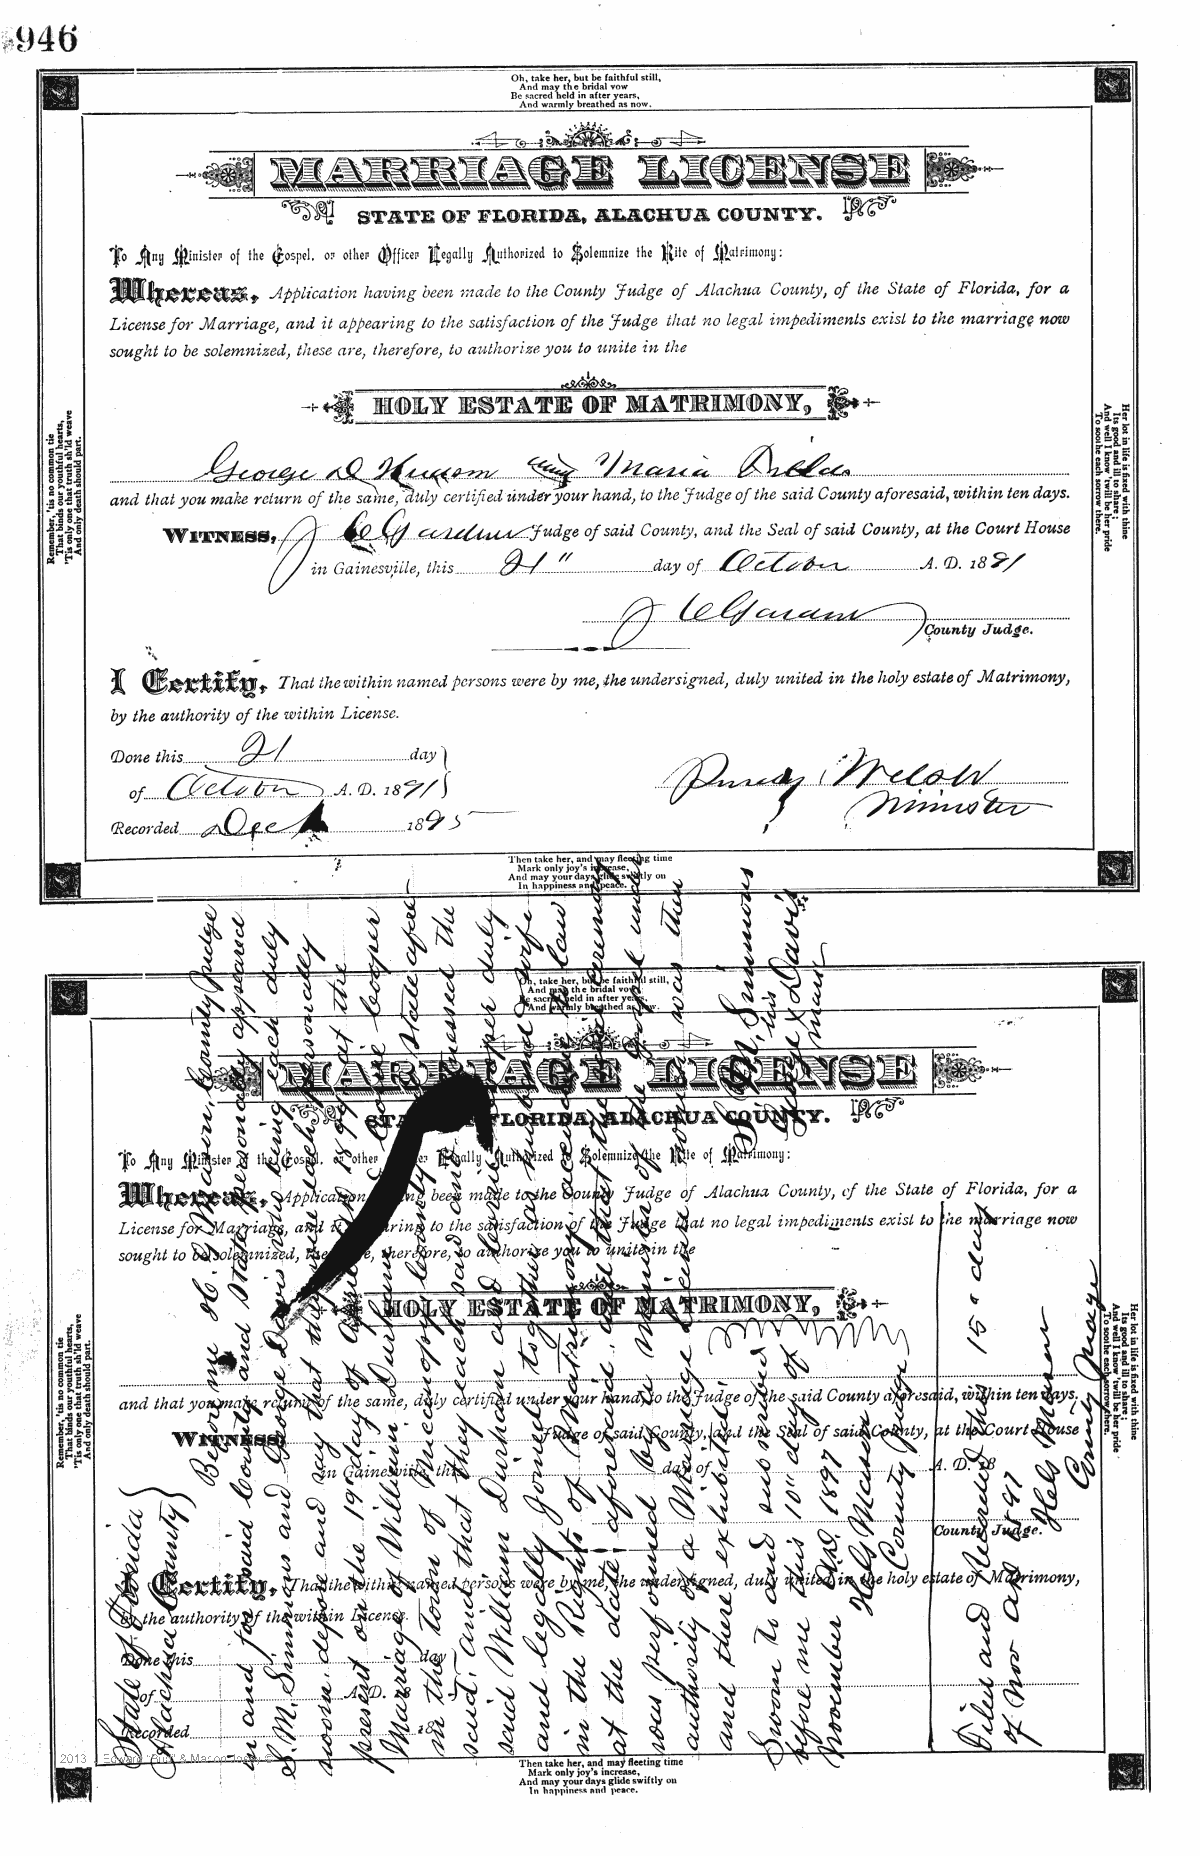 946
Oh, take her, but be faithful still,
And may the bridal vow
Be sacred held in after years,
And warmly breathed as now.
MARRIAGE LICENSE
STATE OF FLORIDA, ALACHUA COUNTY.
To Any Minister of the Gospel, or other Officer Legally Authorized to Solemnize the Rite of Matrimony:
Whereas, Application having been made to the County Judge of Alachua County, of the State of Florida, for a
License for Marriage, and it appearing to the satisfaction of the Judge that no legal impediments exist to the marriage now
sought to be solemnized, these are, therefore, to authorize you to unite in the
HOLY ESTATE OF MATRIMONY,
George D and Maria
and that you make return of the same, duly certified under your hand, to the Judge of the said County aforesaid, within ten days.
WITNESS, J C Gardner Judge of said County, and the Seal of said County, at the Court House
in Gainesville, this 21" day of October A. D. 1891
J C
County Judge.
I Certify, That the within named persons were by me, the undersigned, duly united in the holy estate of Matrimony,
by the authority of the within License.
Done this 21 day
of October A. D. 1891
Welsh
Minister
Recorded Dec 1895
Remember, 'tis no common tie
That binds our youthful hearts,
'Tis only one that truth sh'ld weave
And only death should part.
Her lot in life is fixed with thine
Its good and ill to share;
And well I know 'twill be her pride
To soothe each sorrow there.
Then take her, and may fleeting time
Mark only joy's increase,
And may your days glide swiftly on
In happiness and peace.
Oh, take her, but be faithful still,
And may the bridal vow
Be sacred held in after years,
And warmly breathed as now.
MARRIAGE LICENSE
STATE OF FLORIDA, ALACHUA COUNTY.
To Any Minister of the Gospel, or other Legally Authorized to Solemnize the Rite of Matrimony:
Whereas, Application having been made to the County Judge of Alachua County, of the State of Florida, for a
License for Marriage, and it appearing to the satisfaction of the Judge that no legal impediments exist to the marriage now
sought to be solemnized, these are, therefore, to authorize you to unite in the
HOLY ESTATE OF MATRIMONY,
and that you make return of the same, duly certified under your hand, to the Judge of the said County aforesaid, within ten days.
WITNESS, Judge of said County, and the Seal of said County, at the Court House
in Gainesville, this day of A. D. 18
County Judge.
I Certify, That the within named persons were by me, the undersigned, duly united in the holy estate of Matrimony,
by the authority of the within License.
Done this day
of A. D. 18
Recorded 18
Remember, 'tis no common tie
That binds our youthful hearts,
'Tis only one that truth sh'ld weave
And only death should part.
Her lot in life is fixed with thine
Its good and ill to share;
And well I know 'twill be her pride
To soothe each sorrow there.
Then take her, and may fleeting time
Mark only joy's increase,
And may your days glide swiftly on
In happiness and peace.
State of Florida
Alachua County
Before me H. G. Mason, County Judge
in and for said County and State personally appeared
S. M. Simmons and George Davis who being each duly
sworn, depose and say that they were each personally
present on the 19" day of 189 at the
Marriage of William Durham Cooper
in the town of Micanopy County State
said, and that they each said and witnessed the
said William Durham and Cooper duly
and legally joined together as man and wife
in the Rights of Matrimony, according to law
at the date aforesaid, and that the ceremony
was performed by a Minister of the Gospel under
authority of a Marriage License which was then
and there exhibited.
S. M. Simmons
his
George X Davis
mark
Sworn to and subscribed
before me this 10" day of
November A.D. 1897
H. G. Mason
County Judge
Filed and Recorded this 15" day
of Nov A.D. 1897
H. G. Mason
County Judge
2013